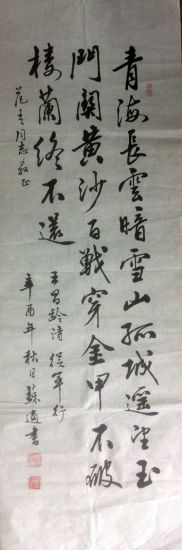 青海長雲暗雪山孤城遥望玉
門關黄沙百戰穿金甲不破
樓蘭終不還
王昌齡詩從軍行
同志教正
辛酉年秋日蘇適書